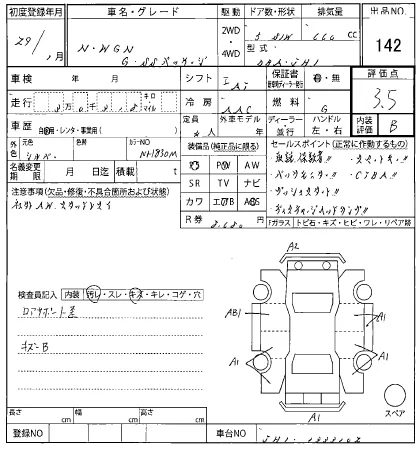 初度登録年月
車名・グレード
駆動
ドア数・形状
排気量
出品NO.
29/ 月
N-WGN
G・SSパッケージ
2WD
・
4WD
5 S/W
660 cc
型式
DBA-JH1
142
車検 年 月
シフト
IAT
保証書
有・無
評価点
3.5
走行
キロ
マイル
冷房
AAC
燃料
G
車歴
自家用・レンタ・事業用( )
定員
4人
外車モデル
年
ディーラー
並行
ハンドル
左・右
内装評価
B
外色
元色
シルバー
色替
カラーNO
NH830M
装備品(純正品に限る)
セールスポイント(正常に作動するもの)
取説、保証書!!
スマートキー!!
バックモニター!!
CTBA!!
プッシュスタート!!
名義変更期限
月 日迄
積載
t
PS PW AW
SR TV ナビ
カワ エアB ABS
R券
8,680
注意事項(欠品・修復・不具合箇所および状態)
社外AW、スタッドレスタイヤ
Fガラス トビ石・キズ・ヒビ・ワレ・リペア跡
検査員記入
内装
汚レ・スレ・キズ・キレ・コゲ・穴
キズ-B
A2
AB1
A1
A1
A1
A1
スペア
長さ cm
幅 cm
高さ cm
登録NO
車台NO